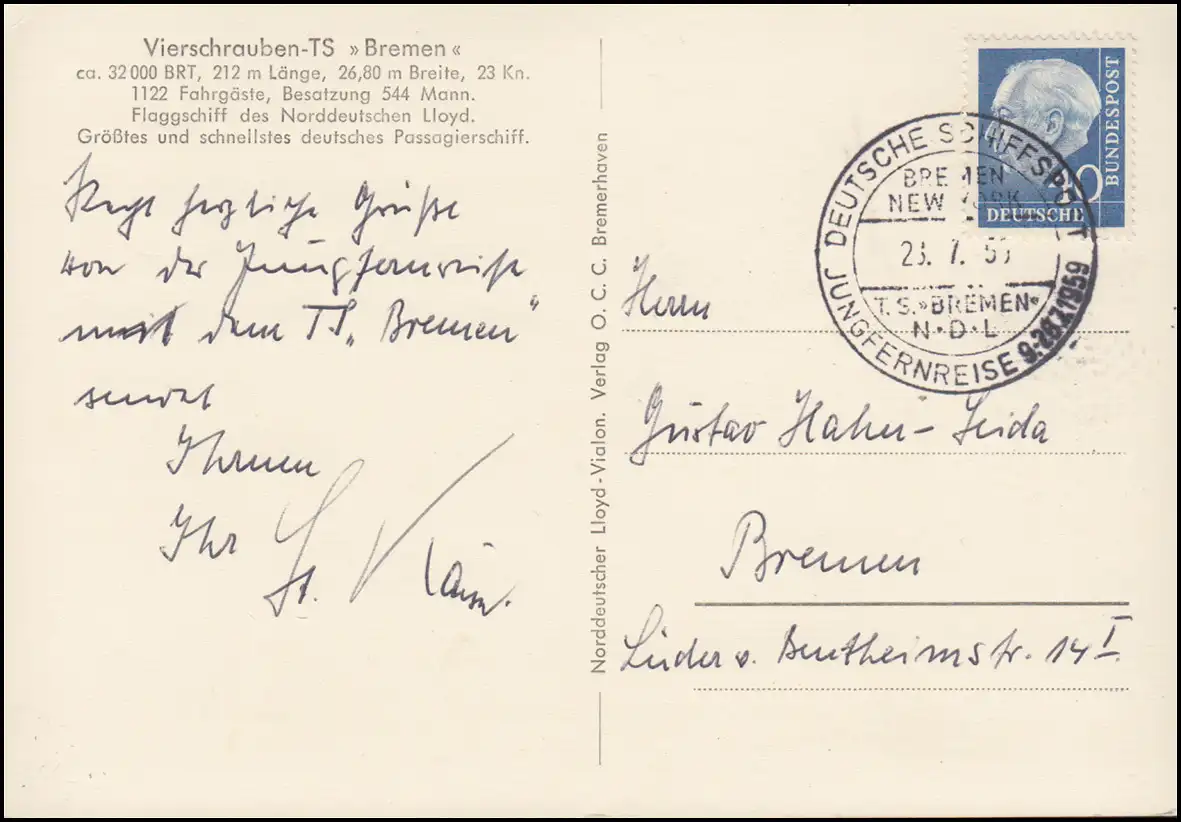 Vierschrauben-TS »Bremen«
ca. 32 000 BRT, 212 m Länge, 26,80 m Breite, 23 Kn.
1122 Fahrgäste, Besatzung 544 Mann.
Flaggschiff des Norddeutschen Lloyd.
Größtes und schnellstes deutsches Passagierschiff.
Recht herzliche Grüße
von der Jungfernreise
mit dem TS „Bremen"
sendet
Ihnen
Ihr
Norddeutscher Lloyd-Vialon. Verlag O. C. C. Bremerhaven
BUNDESPOST
DEUTSCHE
DEUTSCHE SCHIFFSPOST
BREMEN
NEW YORK
23. 7. 59
T.S. »BREMEN«
N·D·L
JUNGFERNREISE 9.-28.7.1959
Herrn
Gustav
Bremen
Lüder v. Bentheimstr. 14 I.